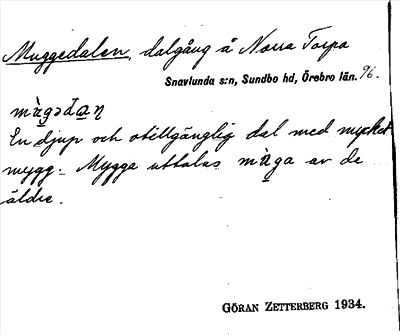 Muggedalen, dalgång å Norra Torpa
Snavlunda s:n, Sundbo hd, Örebro län. 96.
En djup och otillgänglig dal med mycket
mygg. Mygga uttalas av de
äldre.
GÖRAN ZETTERBERG 1934.